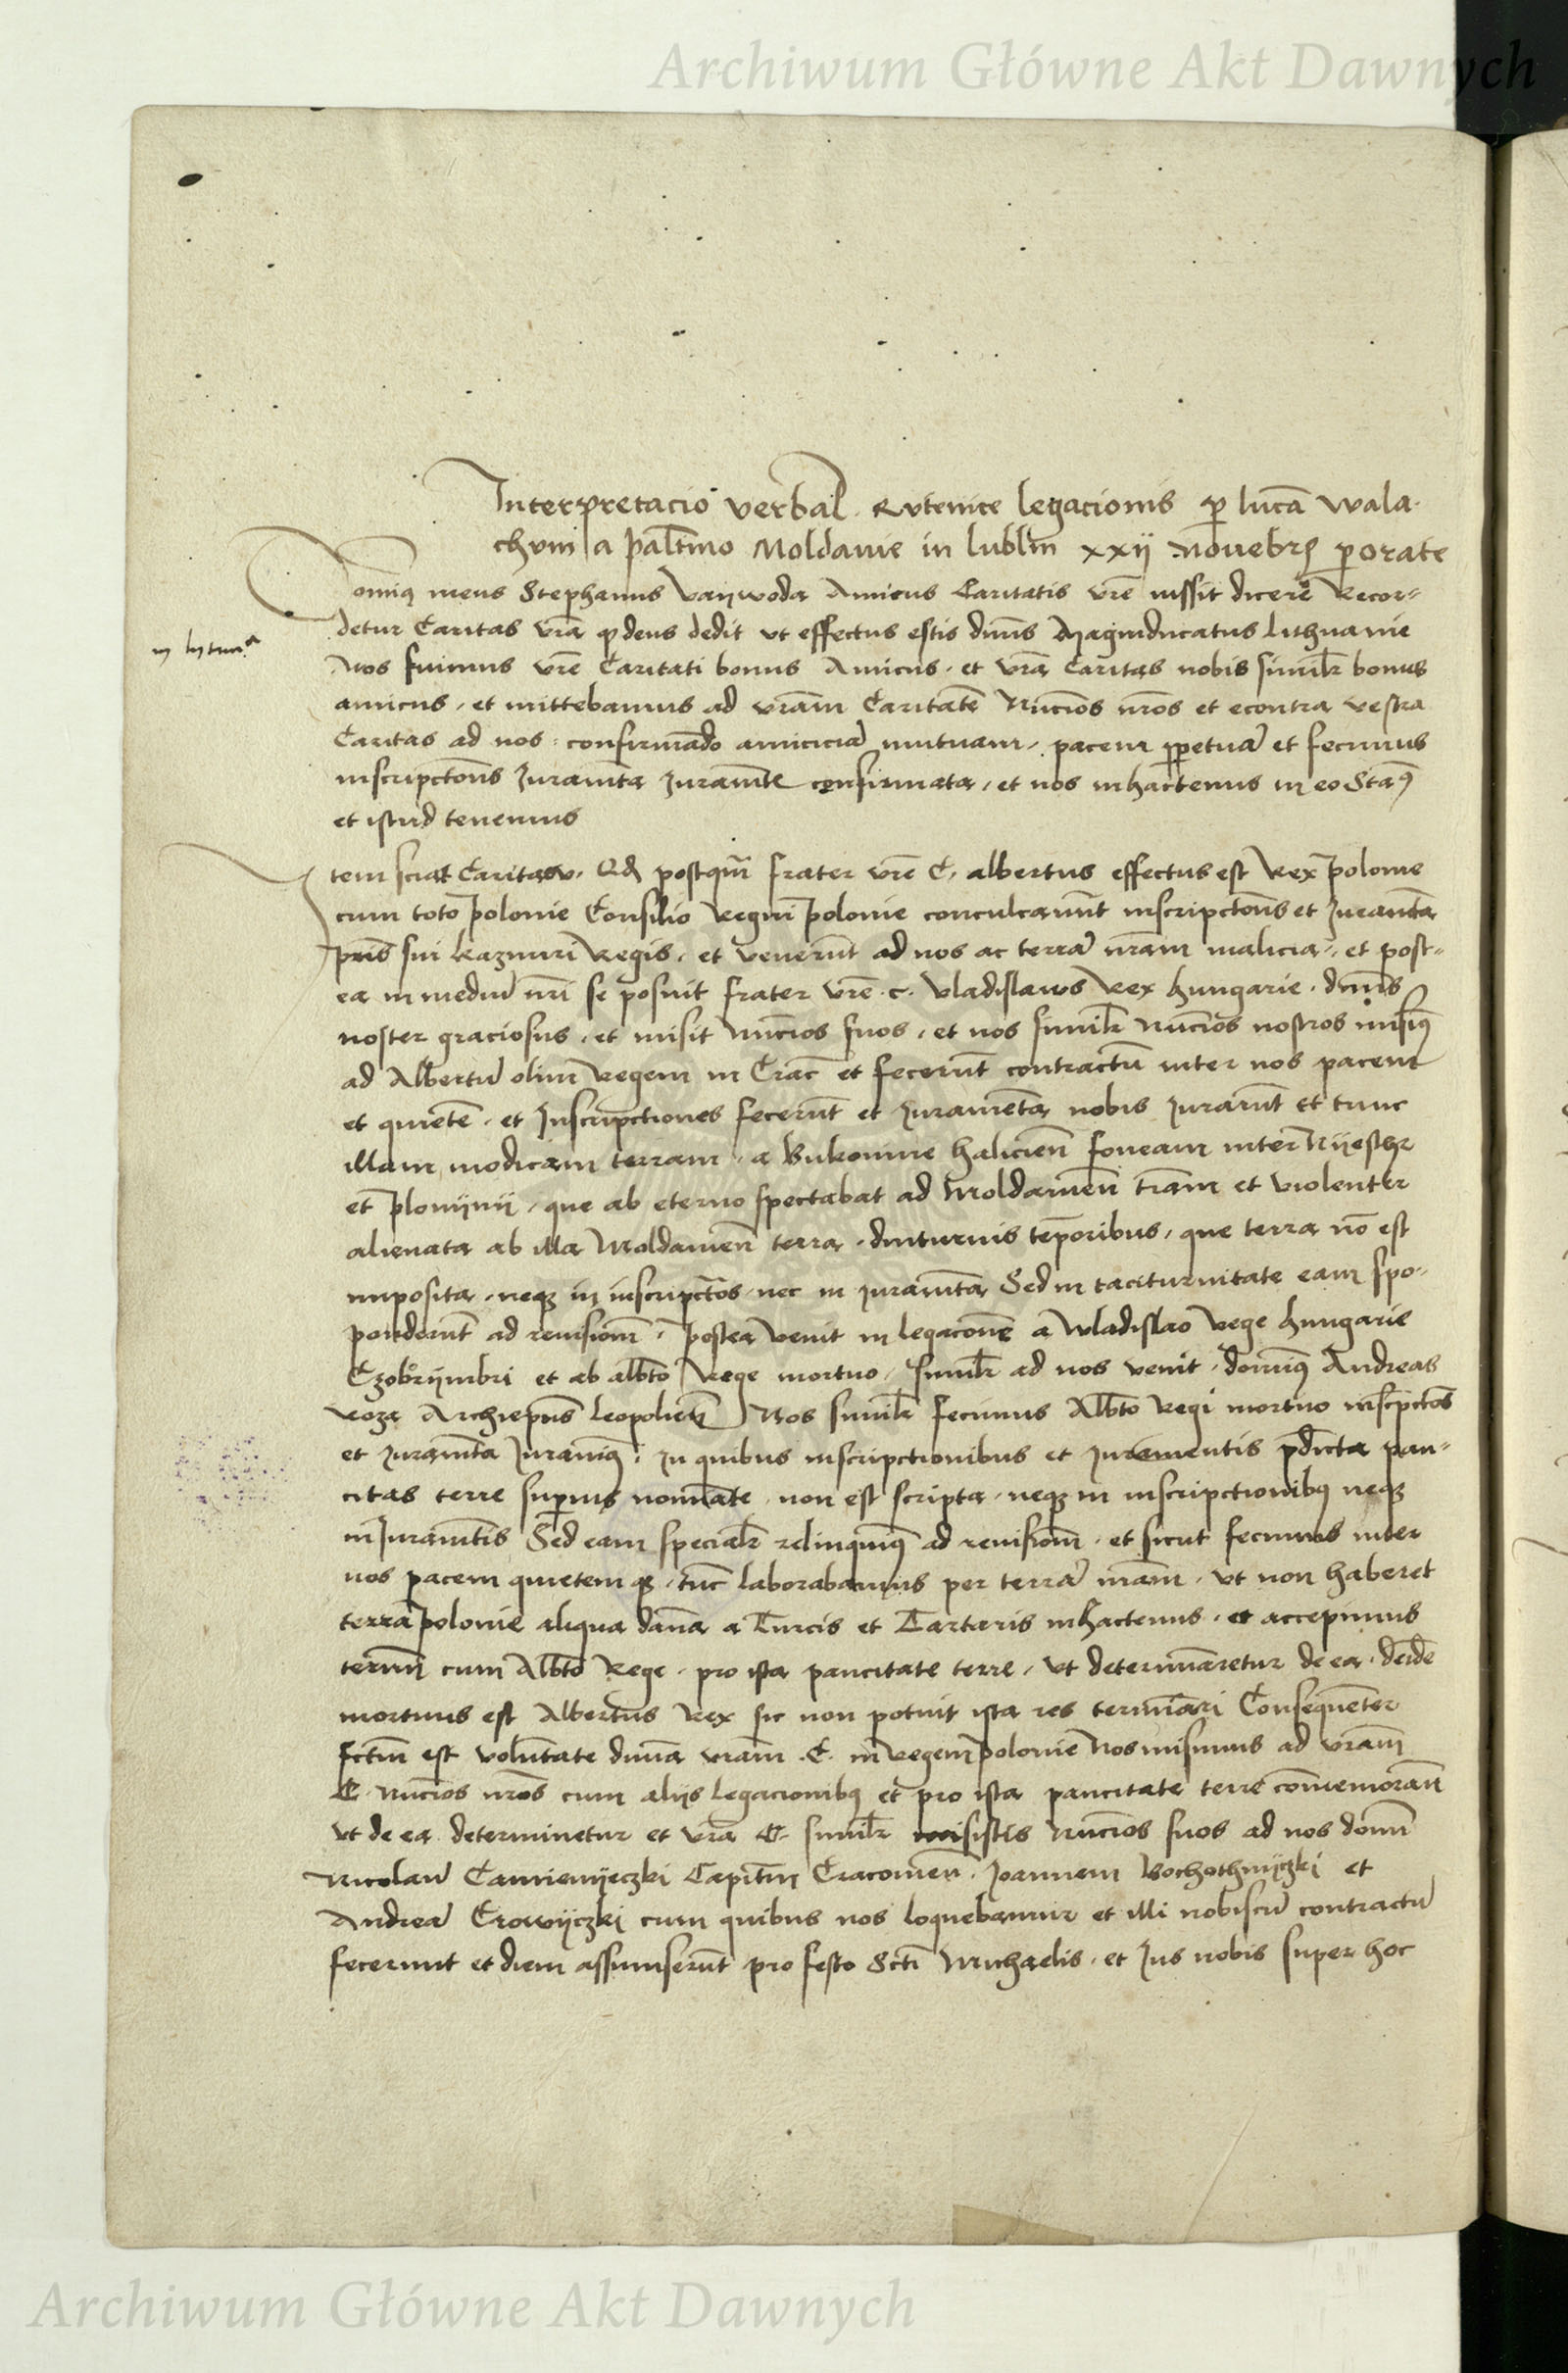 Archiwum Główne Akt Dawnych
Interpretacio verbal. Rutenice legacionis p lucã Wala-
chum a palatino Moldavie in lublin xxij Novebrẽ porate
Dominꝰ meus Stephanus Vaywoda Amicus Caritatis vrẽ iussit dicere Recor-
detur Caritas vrã ꝙ deus dedit ut effectus estis dnũs Magniducatus Lithuanie
Nos fuimus vrẽ Caritati bonus Amicus. et vrã Caritas nobis similr̃ bonus
amicus, et mittebamus ad vrãm Caritatẽ Nũcios nrõs et econtra vestra
Caritas ad nos confirmãdo amiciciã mutuam, pacem ꝑpetuã et fecimus
inscripctõns Juramta Juramte confirmata, et nos inhactenus in eo stamꝰ
et istud tenemus
in lytwa
Item sciat Caritas v. Qd postqm̃ frater vrẽ C. albertus effectus est Rex polonie
cum toto polonie Consilio Regni polonie conculcarunt inscripctõns et Juramta
pris sui kazmiri Regis, et venerũt ad nos ac terrã nrãm malicia, et post-
ea in mediũ nri se posuit frater vrẽ. c. Vladislaws Rex hungarie. dnũs
noster graciosus, et misit nũcios suos, et nos similr̃ nũcios nostros misimꝰ
ad Albertũ olim Regem in Crac̃ et fecerũt contractũ inter nos pacem
et quietẽ, et Inscripctiones fecerũt et Juramẽta nobis Jurarũt et tunc
illam modicam terram, a Bukovine halicien̄ foveam inter Nyestr
et plonynÿ, que ab eterno spectabat ad Moldavien̄ trãm et violenter
alienata ab illa Moldavien̄ terra, diuturnis tẽporibus, que terra nõ est
imposita, neqꝫ in inscripctõs, nec in juramta Sed in taciturnitate eam spo-
ponderũt ad revisionm̃, postea venit in legaconẽ a Wladislao Rege hungarie
Czobrÿmbri et ab albto Rege mortuo, similr̃ ad nos venit, dominꝰ Andreas
Roza Archiepũs leopolien̄ Nos similr̃ fecimus Albto Regi mortuo inscripctões
et Juramta Juravimꝰ, in quibus inscripctionibus et Juramentis p̃dicta pau-
citas terre supius nomiate, non est scripta, neqꝫ in inscripctionibꝰ neqꝫ
in Juramtis Sed eam specialr̃ relinquimꝰ ad revisionm̃, et sicut fecimus inter
nos pacem quietem qꝫ, tũc laborabamus per terrã nrãm, ut non haberet
terra polonie aliqua dãna a Turcis et Tartaris inhactenus, et accepimus
termĩ cum Albto Rege, pro ista paucitate terre, ut determinaretur de ea, deĩde
mortuus est Albertus Rex sic non potuit ista res terminari Consequẽter
fctm̃ est volũtate divina vrãm. C. in Regem polonie Nos misimus ad vrãm
C. nũcios nrõs cum alijs legacionibꝰ et pro ista paucitate terre cõmemoran̄
ut de ea determinetur et vrã C. similr̃ misistis nũcios suos ad nos domĩ
Nicolaũ Camienÿeczki Capitm̃ Cracovien̄. Joannem Bochothnÿczki et
Andreã Crowÿczki cum quibus nos loquebamur et illi nobiscũ contractũ
fecerunt et diem assumserũt pro festo Scti Michaelis, et Jus nobis super hoc
Archiwum Główne Akt Dawnych